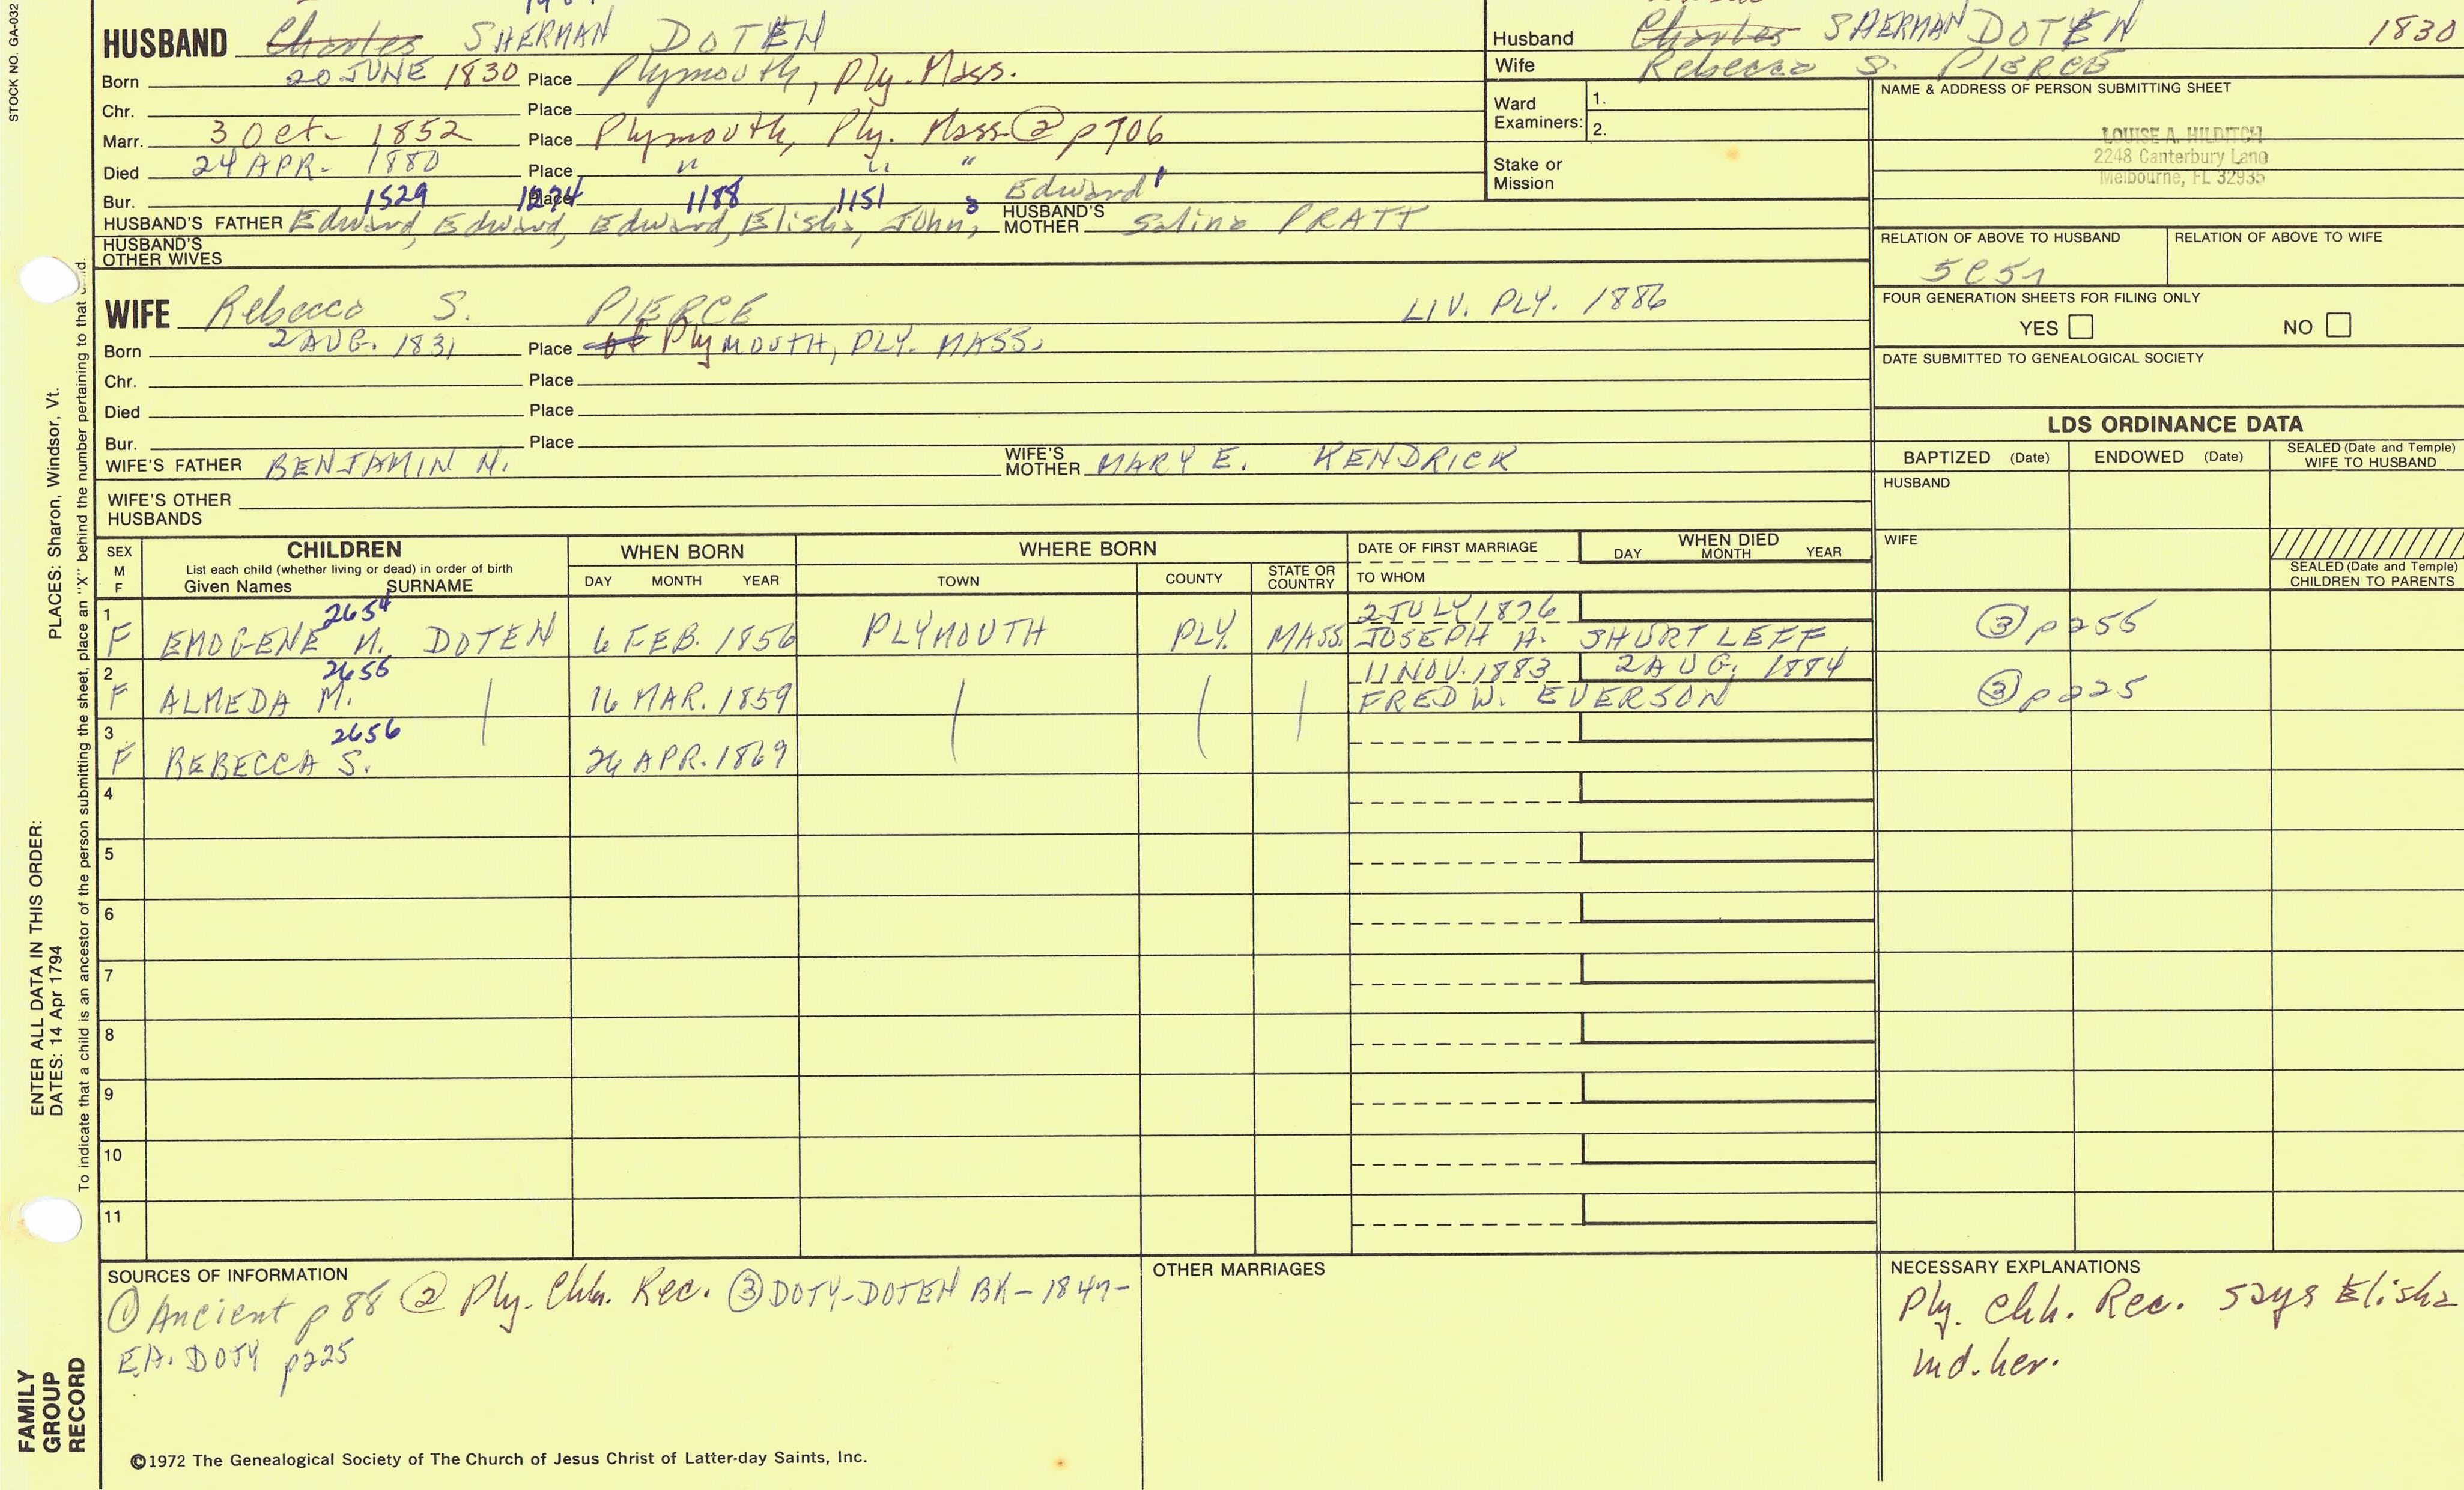 STOCK NO. GA-032
HUSBAND Charles SHERMAN DOTEN
Born 20 JUNE 1830 Place Plymouth, Ply. Mass.
Chr. Place
Marr. 3 Oct- 1852 Place Plymouth, Ply. Mass. ② p706
Died 24 APR. 1880 Place " " "
Bur. 1529 1274 Place 1188 1151 8 Edward'
HUSBAND'S FATHER Edward, Edward, Edward, Elisha, John, HUSBAND'S MOTHER Salina PRATT
HUSBAND'S OTHER WIVES
Husband Charles SHERMAN DOTEN 1830
Wife Rebecca S. PIERCE
Ward Examiners: 1.
2.
Stake or Mission
NAME & ADDRESS OF PERSON SUBMITTING SHEET
LOUISE A. HILDITCH
2248 Canterbury Lane
Melbourne, FL 32935
RELATION OF ABOVE TO HUSBAND RELATION OF ABOVE TO WIFE
5C5
FOUR GENERATION SHEETS FOR FILING ONLY
YES NO
DATE SUBMITTED TO GENEALOGICAL SOCIETY
WIFE Rebecca S. PIERCE LIV. PLY. 1886
Born 2 AUG. 1831 Place of Plymouth, PLY. MASS.
Chr. Place
Died Place
Bur. Place
WIFE'S FATHER BENJAMIN N. WIFE'S MOTHER MARY E. KENDRICK
WIFE'S OTHER HUSBANDS
LDS ORDINANCE DATA
BAPTIZED (Date) ENDOWED (Date) SEALED (Date and Temple) WIFE TO HUSBAND
HUSBAND
WIFE
SEALED (Date and Temple) CHILDREN TO PARENTS
SEX M F CHILDREN List each child (whether living or dead) in order of birth Given Names SURNAME
WHEN BORN DAY MONTH YEAR
WHERE BORN TOWN COUNTY STATE OR COUNTRY
DATE OF FIRST MARRIAGE TO WHOM
WHEN DIED DAY MONTH YEAR
1 2654 2 JULY 1876
F EMOGENE M. DOTEN 6 FEB. 1856 PLYMOUTH PLY. MASS. JOSEPH A. SHURTLEFF ③ p255
2 2655 11 NOV. 1883 2 AUG. 1884
F ALMEDA M. 16 MAR. 1859 FRED W. EVERSON ③ p225
3 2656
F REBECCA S. 26 APR. 1869
4
5
6
7
8
9
10
11
SOURCES OF INFORMATION
① Ancient p 88 ② Ply. Chh. Rec. ③ DOTY-DOTEN BK- 1897-
EA. DOTY p225
OTHER MARRIAGES
NECESSARY EXPLANATIONS
Ply. Chh. Rec. says Elisha
md. her.
©1972 The Genealogical Society of The Church of Jesus Christ of Latter-day Saints, Inc.
FAMILY GROUP RECORD
ENTER ALL DATA IN THIS ORDER:
DATES: 14 Apr 1794
PLACES: Sharon, Windsor, Vt.
To indicate that a child is an ancestor of the person submitting the sheet, place an "X" behind the number pertaining to that child.